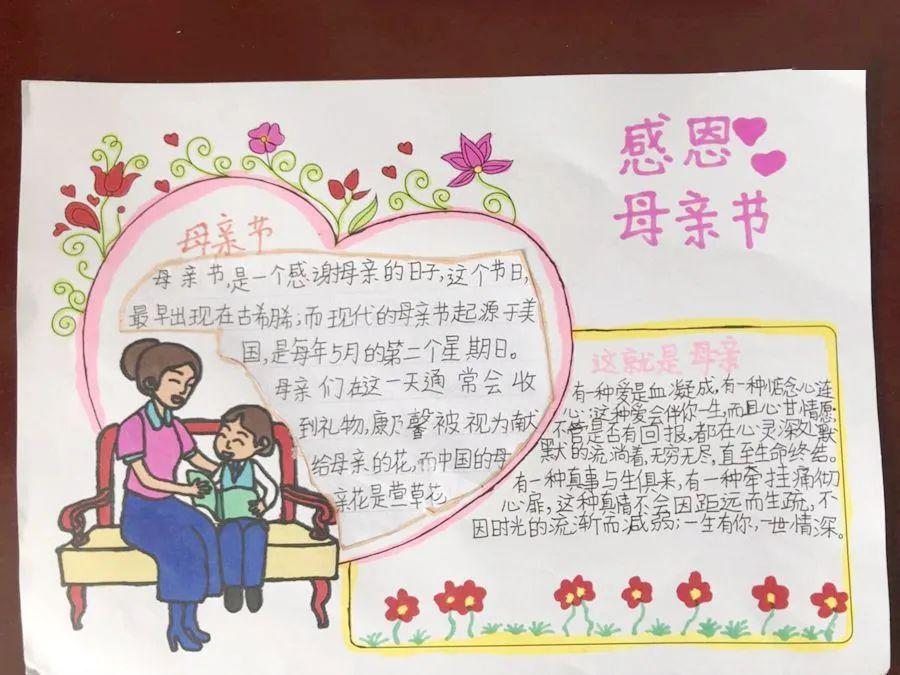 感恩
母亲节
母亲节
母亲节,是一个感谢母亲的日子,这个节日,
最早出现在古希腊;而现代的母亲节起源于美
国,是每年5月的第二个星期日。
母亲们在这一天通常会收
到礼物,康乃馨被视为献
给母亲的花,而中国的母
亲花是萱草花
这就是母亲
有一种爱是血凝成,有一种惦念心连
心;这种爱会伴你一生,而且心甘情愿
不管是古有回报,都在心灵深处默
默的流淌着,无穷无尽,直至生命终结。
有一种真事与生俱来,有一种牵挂痛彻
心扉,这种真情不会因距远而生疏,不
因时光的流渐而减弱;一生有你,一世情深。